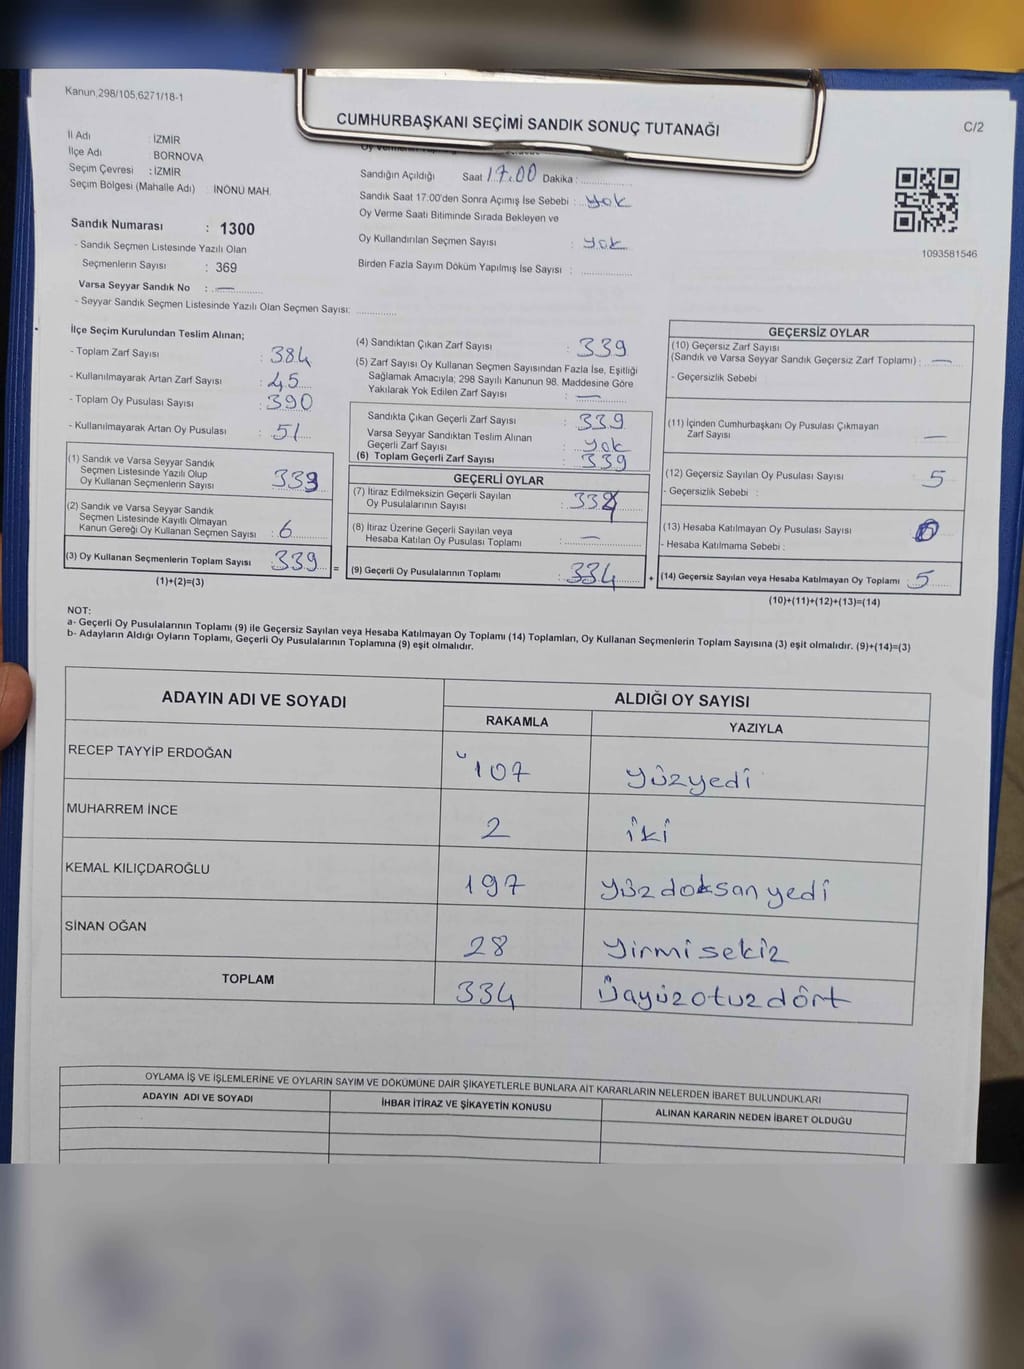 Kanun,298/105,6271/18-1
CUMHURBAŞKANI SEÇİMİ SANDIK SONUÇ TUTANAĞI
C/2
İl Adı : İZMİR
İlçe Adı : BORNOVA
Seçim Çevresi : İZMİR
Seçim Bölgesi (Mahalle Adı) : İNÖNÜ MAH.
Sandık Numarası : 1300
- Sandık Seçmen Listesinde Yazılı Olan
Seçmenlerin Sayısı : 369
Varsa Seyyar Sandık No : —
- Seyyar Sandık Seçmen Listesinde Yazılı Olan Seçmen Sayısı:
Sandığın Açıldığı Saat 17.00 Dakika :
Sandık Saat 17:00'den Sonra Açımış İse Sebebi : yok
Oy Verme Saati Bitiminde Sırada Bekleyen ve
Oy Kullandırılan Seçmen Sayısı : yok
Birden Fazla Sayım Döküm Yapılmış İse Sayısı :
1093581546
İlçe Seçim Kurulundan Teslim Alınan;
- Toplam Zarf Sayısı : 384
- Kullanılmayarak Artan Zarf Sayısı : 45
- Toplam Oy Pusulası Sayısı : 390
- Kullanılmayarak Artan Oy Pusulası : 51
(1) Sandık ve Varsa Seyyar Sandık
Seçmen Listesinde Yazılı Olup
Oy Kullanan Seçmenlerin Sayısı 333
(2) Sandık ve Varsa Seyyar Sandık
Seçmen Listesinde Kayıtlı Olmayan
Kanun Gereği Oy Kullanan Seçmen Sayısı : 6
(3) Oy Kullanan Seçmenlerin Toplam Sayısı 339 =
(1)+(2)=(3)
(4) Sandıktan Çıkan Zarf Sayısı : 339
(5) Zarf Sayısı Oy Kullanan Seçmen Sayısından Fazla İse, Eşitliği
Sağlamak Amacıyla; 298 Sayılı Kanunun 98. Maddesine Göre
Yakılarak Yok Edilen Zarf Sayısı : —
Sandıkta Çıkan Geçerli Zarf Sayısı : 339
Varsa Seyyar Sandıktan Teslim Alınan
Geçerli Zarf Sayısı : yok
(6) Toplam Geçerli Zarf Sayısı : 339
GEÇERLİ OYLAR
(7) İtiraz Edilmeksizin Geçerli Sayılan
Oy Pusulalarının Sayısı : 334
(8) İtiraz Üzerine Geçerli Sayılan veya
Hesaba Katılan Oy Pusulası Toplamı : —
(9) Geçerli Oy Pusulalarının Toplamı : 334 +
GEÇERSİZ OYLAR
(10) Geçersiz Zarf Sayısı
(Sandık ve Varsa Seyyar Sandık Geçersiz Zarf Toplamı) : —
- Geçersizlik Sebebi :
(11) İçinden Cumhurbaşkanı Oy Pusulası Çıkmayan
Zarf Sayısı —
(12) Geçersiz Sayılan Oy Pusulası Sayısı 5
- Geçersizlik Sebebi :
(13) Hesaba Katılmayan Oy Pusulası Sayısı
- Hesaba Katılmama Sebebi :
(14) Geçersiz Sayılan veya Hesaba Katılmayan Oy Toplamı : 5
(10)+(11)+(12)+(13)=(14)
NOT:
a- Geçerli Oy Pusulalarının Toplamı (9) ile Geçersiz Sayılan veya Hesaba Katılmayan Oy Toplamı (14) Toplamları, Oy Kullanan Seçmenlerin Toplam Sayısına (3) eşit olmalıdır. (9)+(14)=(3)
b- Adayların Aldığı Oyların Toplamı, Geçerli Oy Pusulalarının Toplamına (9) eşit olmalıdır.
ADAYIN ADI VE SOYADI ALDIĞI OY SAYISI
RAKAMLA YAZIYLA
RECEP TAYYİP ERDOĞAN 107 Yüzyedi
MUHARREM İNCE 2 iki
KEMAL KILIÇDAROĞLU 197 Yüzdoksanyedi
SİNAN OĞAN 28 Yirmisekiz
TOPLAM 334 Üçyüzotuzdört
OYLAMA İŞ VE İŞLEMLERİNE VE OYLARIN SAYIM VE DÖKÜMÜNE DAİR ŞİKAYETLERLE BUNLARA AİT KARARLARIN NELERDEN İBARET BULUNDUKLARI
ADAYIN ADI VE SOYADI İHBAR İTİRAZ VE ŞİKAYETİN KONUSU ALINAN KARARIN NEDEN İBARET OLDUĞU